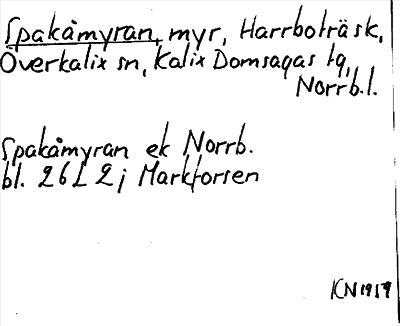 Spakåmyran, myr, Harrboträsk,
Överkalix sn, Kalix Domsagas tg,
Norrb.l.
Spakåmyran ek Norrb.
bl. 26L2j Markforsen
KN1957